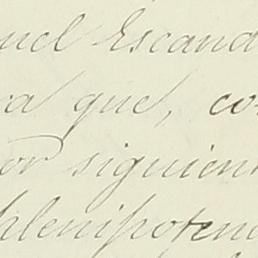 uel Escand
ra que, co
or siguient
plenipoten